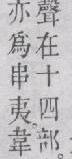 聲在十四部
亦爲串夷韋